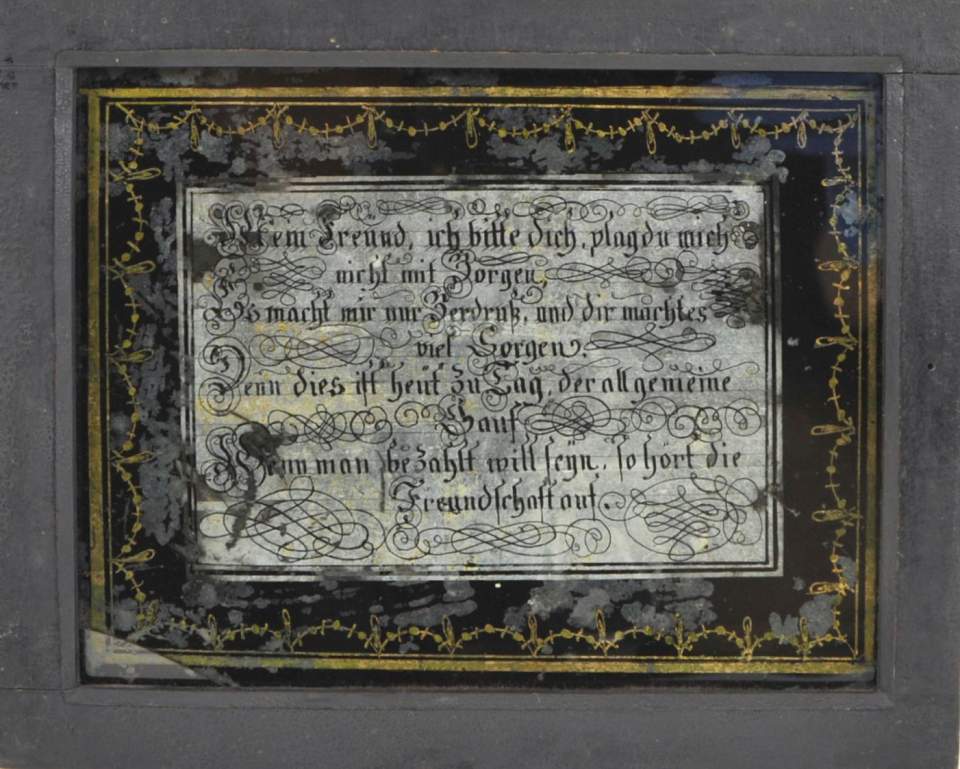 Mein Freünd, ich bitte dich, plag du mich
nicht mit Borgen,
Es macht mir nur Verdruß, und dir macht es
viel Sorgen.
Denn dies ist heüt zu Tag, der allgemeine
Lauf
Wenn man bezahlt will seyn, so hört die
Freundschaft auf.